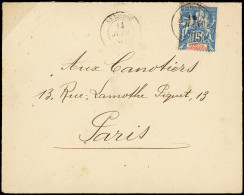 14
15
Aux Canotiers
13, Rue Lamothe Piquet, 13
Paris